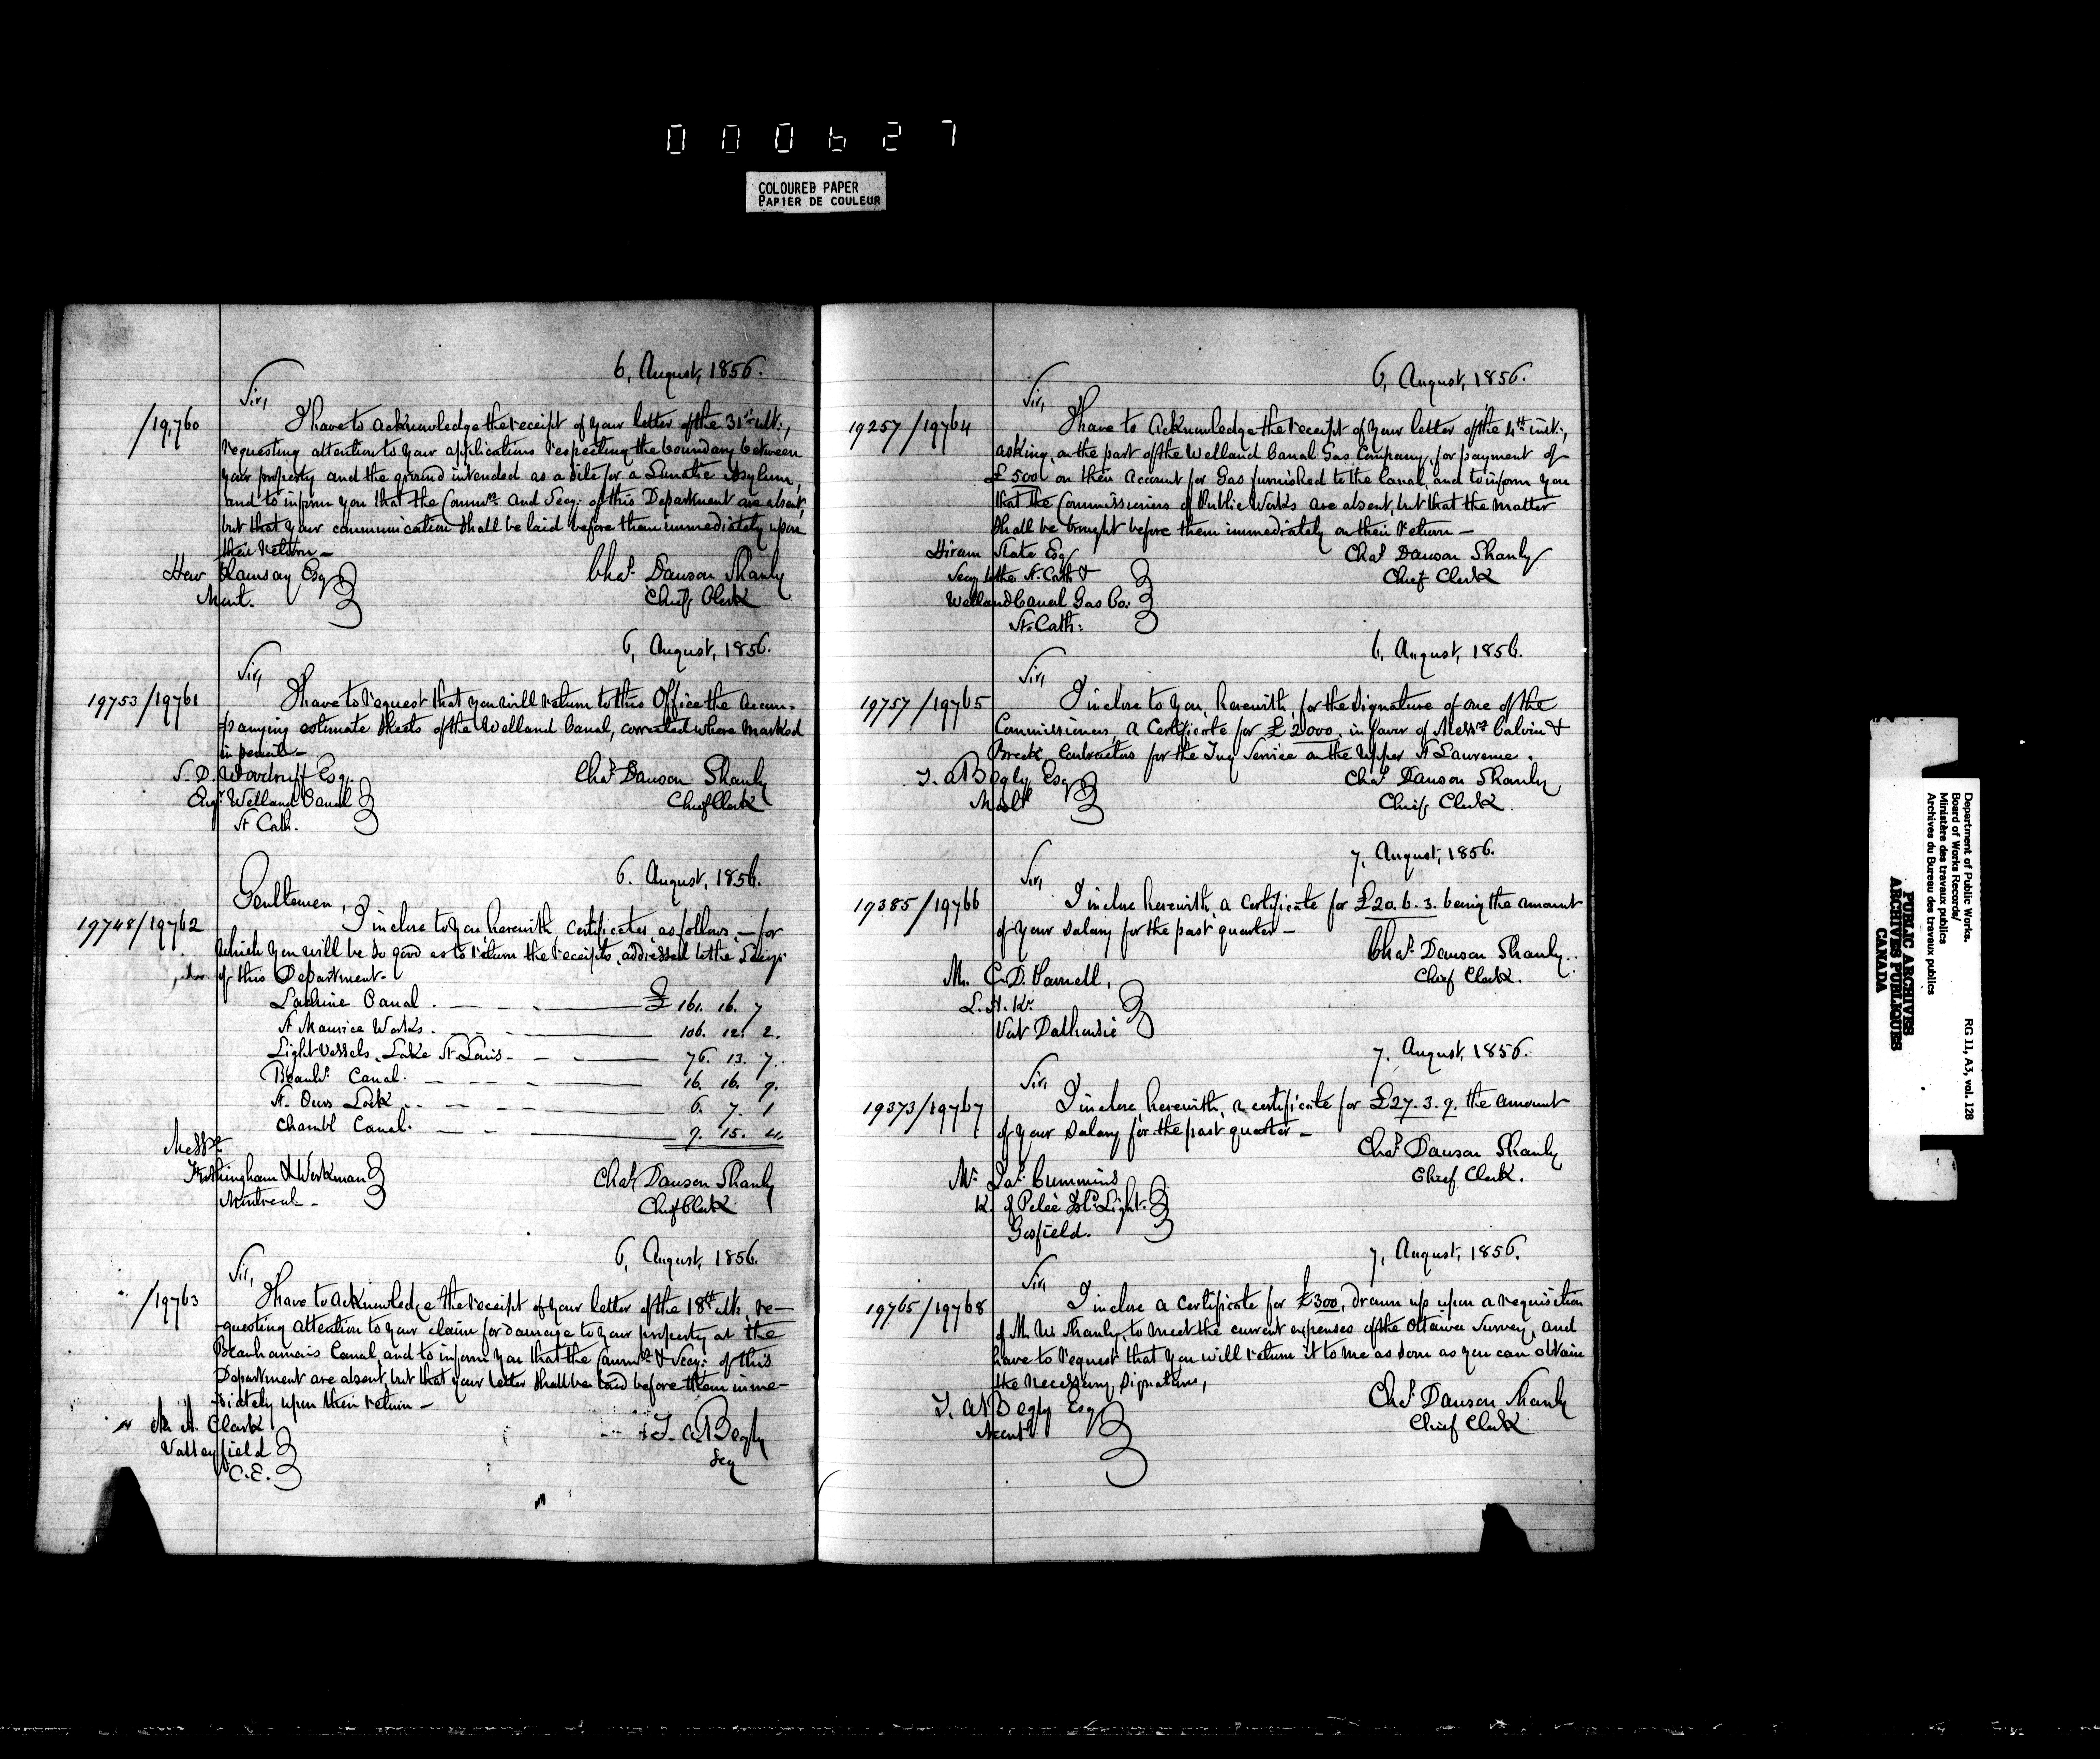 000627
COLOURED PAPER
PAPIER DE COULEUR
6, August, 1856.
Sir,
/19,760
I have to acknowledge the receipt of your letter of the 31st ult:,
requesting attention to your applications respecting the boundary between
your property and the ground intended as a site for a Lunatic Asylum,
and to inform you that the Commrs and Secy: of this Department are absent,
but that your communication shall be laid before them immediately upon
their return —
Hew Ramsay Esq
Mont.
Chas. Dawson Shanly
Chief Clerk
6, August, 1856.
Sir,
19753/19761
I have to request that you will return to this Office the accom-
-panying estimate sheets of the Welland Canal, corrected where marked
in pencil —
S. D. Woodruff Esq.
Engr Welland Canal
St Cath.
Chas Dawson Shanly
Chief Clerk
6. August, 1856.
Gentlemen,
19748/19762
I inclose to you herewith certificates as follows, — for
which you will be so good as to return the receipts, addressed to the Secy:
of this Department-
Lachine Canal . — — . £ 161. 16. 7
St Maurice Works . — 106. 12. 2.
Light Vessels, Lake St Louis — 76. 13. 7.
Beauhs Canal. — 16. 16. 9.
St. Ours Lock . — 6. 7. 1
Chambl Canal. — 9. 15. 4.
Messrs
Frothingham & Workman
Montreal -
Chas Dawson Shanly
Chief Clerk
6, August, 1856.
Sir,
/19763
I have to acknowledge the receipt of your letter of the 18th ult, re—
-questing attention to your claim for damage to your property at the
Beauharnois Canal, and to inform you that the Commrs & Secy: of this
Department are absent, but that your letter shall be laid before them imme—
-diately upon their return —
Mr A. Clark
Valleyfield
C.E.
T. A. Begly
Secy
6, August, 1856.
Sir,
19257/19764
I have to acknowledge the receipt of your letter of the 4th inst:,
asking, on the part of the Welland Canal Gas Company, for payment of
£500 on their account for Gas furnished to the Canal, and to inform you
that the Commissioners of Public Works are absent, but that the matter
shall be brought before them immediately on their return —
Hiram Slate Esq
Secy to the St. Cath &
Welland Canal Gas Co:
St. Cath:
Chas Dawson Shanly
Chief Clerk
6, August, 1856.
Sir,
19757/19765
I inclose to you, herewith, for the signature of one of the
Commissioners, a Certificate for £2000, in favor of Messrs Calvin &
Breck, Contractors for the Tug Service on the Upper St Lawrence.
T. A. Begly Esq
Chas Dawson Shanly
Chief Clerk.
7, August, 1856.
Sir,
19385/19766
I inclose herewith, a Certificate for £20. 6. 3. being the amount
of your salary for the past quarter —
Mr. C. D. Parnell,
L. H. Kr.
Port Dalhousie
Chas. Dawson Shanly.
Chief Clerk.
7, August, 1856.
Sir,
19373/19767
I inclose, herewith, a certificate for £27. 3. 9. the amount
of your salary for the past quarter —
Mr. Jas. Cummins
K. of Pelée Isld Light.
Gosfield.
Chas Dawson Shanly
Chief Clerk.
7, August, 1856.
Sir,
19765/19768
I inclose a Certificate for £300, drawn up upon a requisition
of Mr. W. Shanly, to meet the current expenses of the Ottawa Survey, and
have to request that you will return it to me as soon as you can obtain
the necessary signature,
T. A. Begly Esq
Chas Dawson Shanly
Chief Clerk
Department of Public Works.
Board of Works Records/
Ministère des travaux publics
Archives du Bureau des travaux publics
RG 11, A3, vol. 128
PUBLIC ARCHIVES
ARCHIVES PUBLIQUES
CANADA